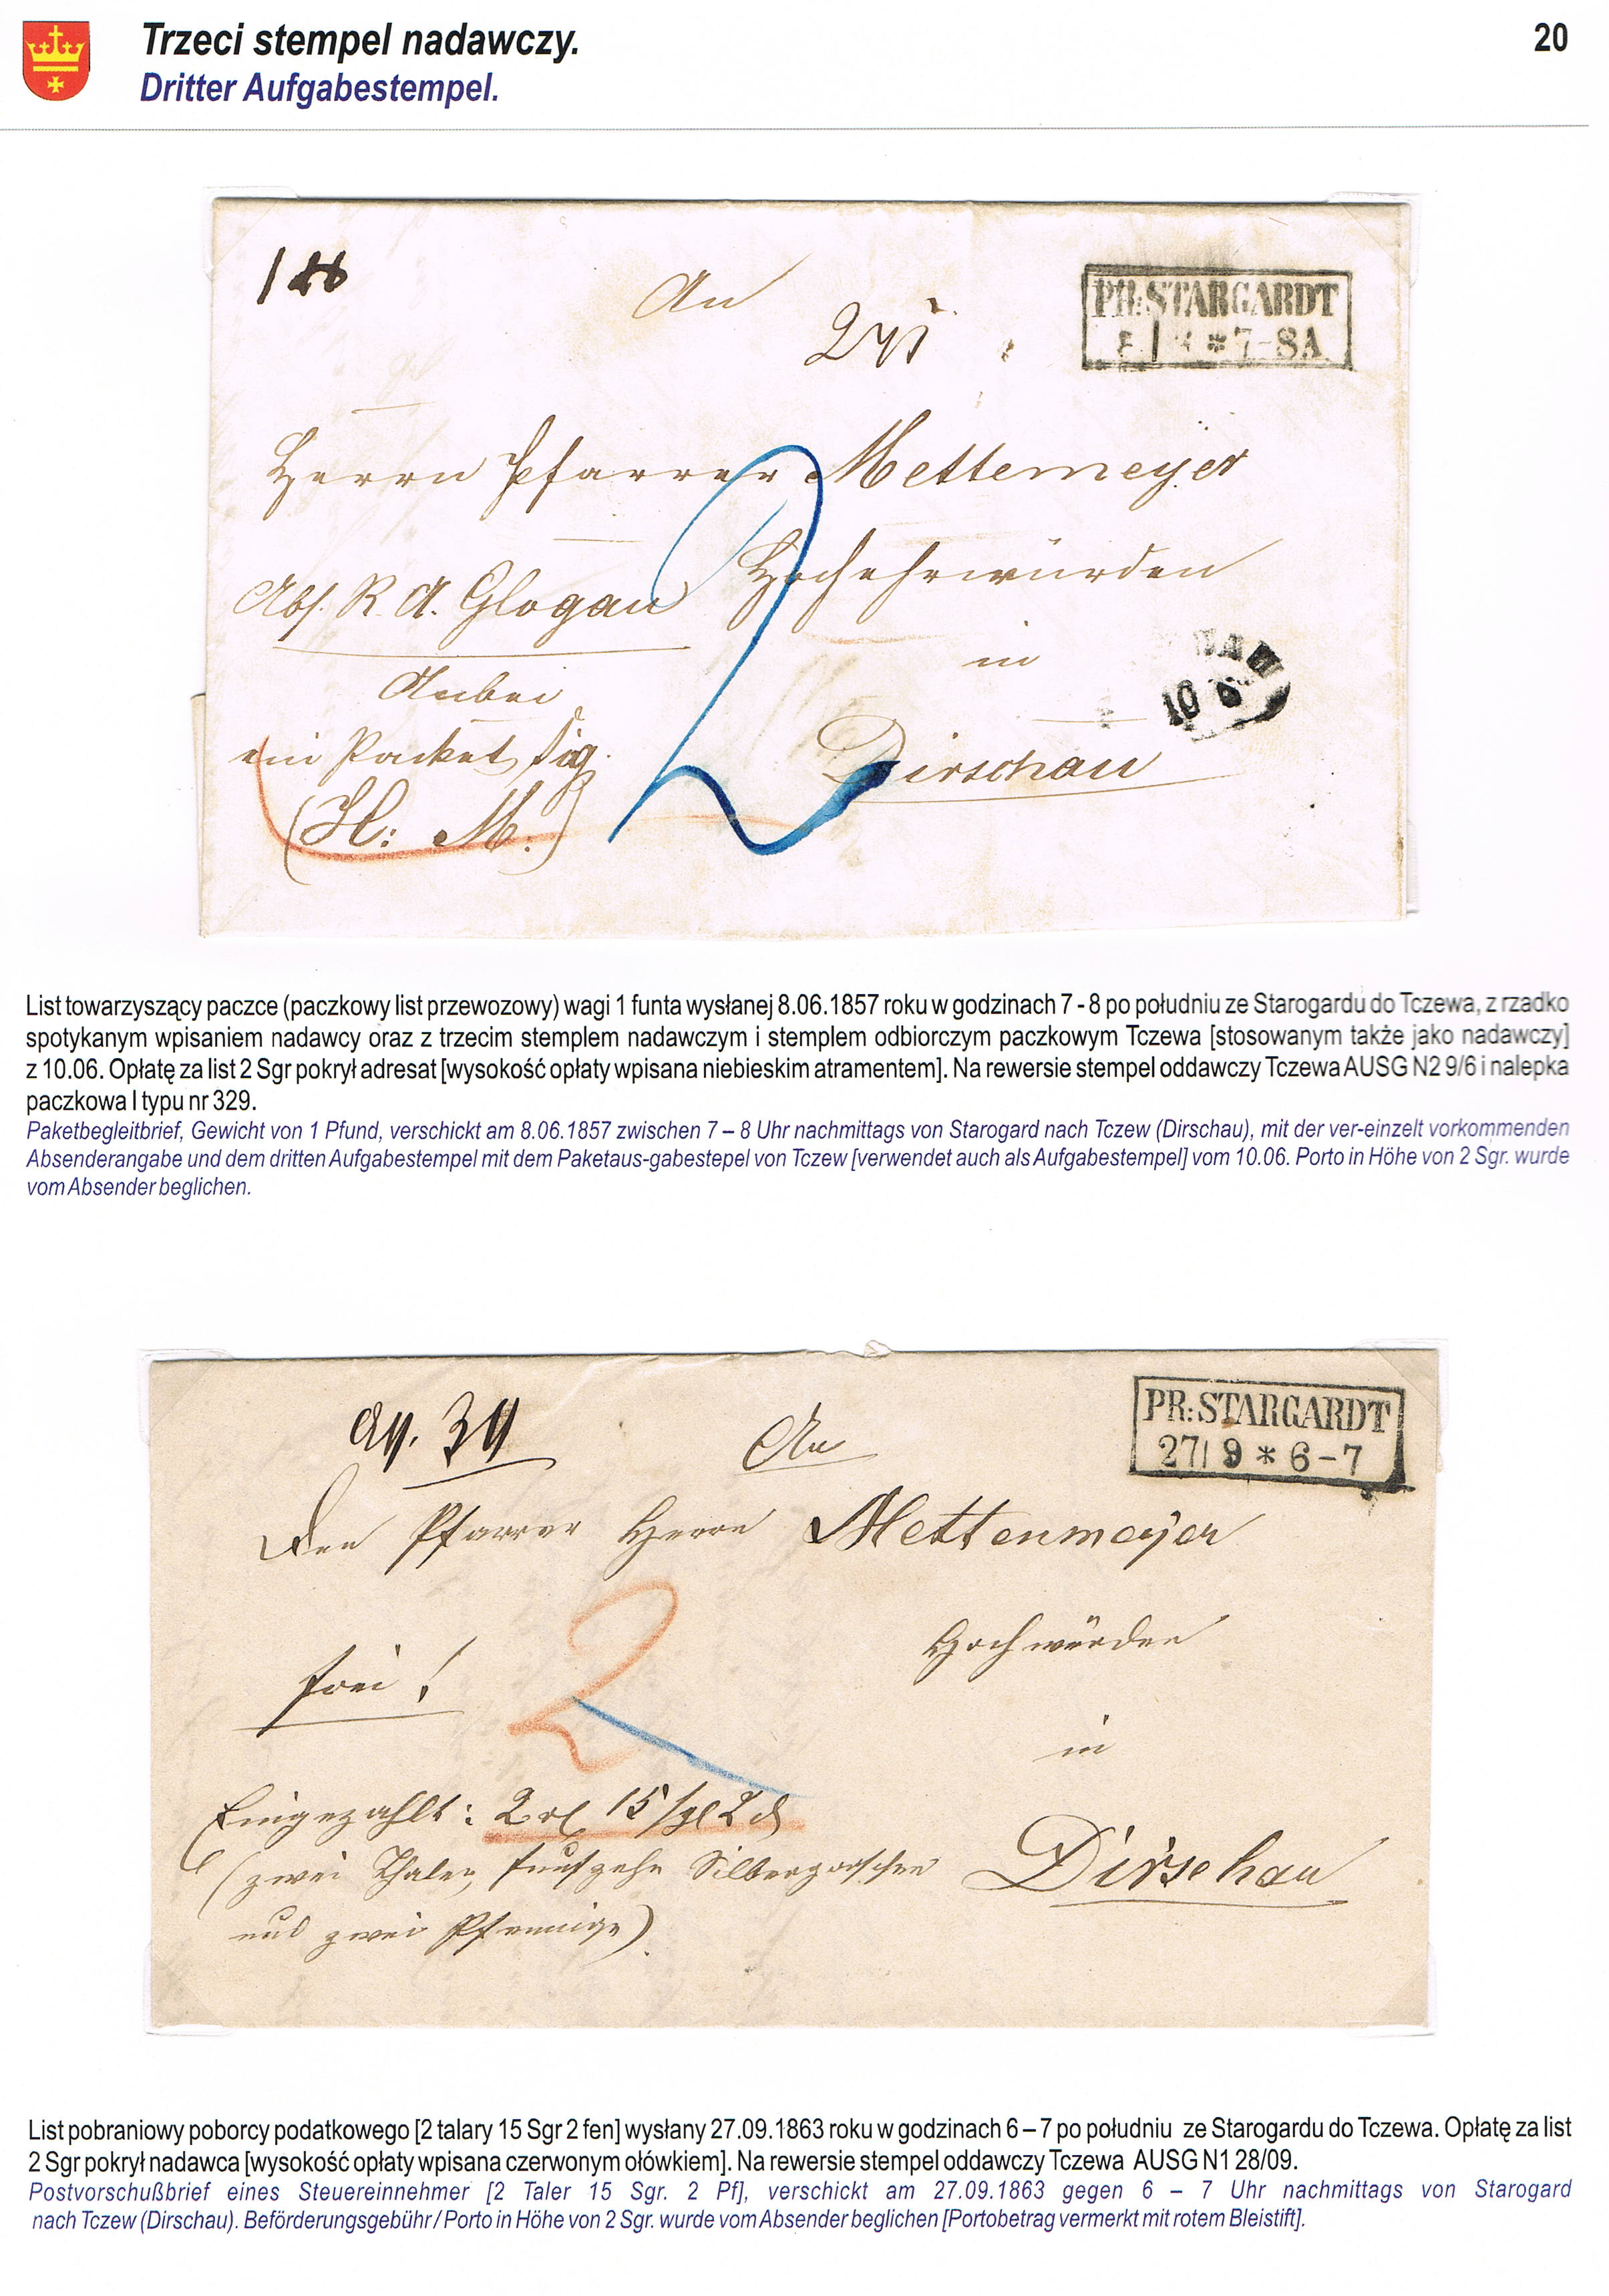 Trzeci stempel nadawczy.
20
Dritter Aufgabestempel.
An
PR:STARGARDT
8 * 7-8A
Herrn Pfarrer Mettemeyer
Hochehrwürden
Abs. R. A. Glogau
in
Anbei
10 6
ein Packet sig.
Dirschau
(H: M:)
List towarzyszący paczce (paczkowy list przewozowy) wagi 1 funta wysłanej 8.06.1857 roku w godzinach 7 - 8 po południu ze Starogardu do Tczewa, z rzadko
spotykanym wpisaniem nadawcy oraz z trzecim stemplem nadawczym i stemplem odbiorczym paczkowym Tczewa [stosowanym także jako nadawczy]
z 10.06. Opłatę za list 2 Sgr pokrył adresat [wysokość opłaty wpisana niebieskim atramentem]. Na rewersie stempel oddawczy Tczewa AUSG N2 9/6 i nalepka
paczkowa I typu nr 329.
Paketbegleitbrief, Gewicht von 1 Pfund, verschickt am 8.06.1857 zwischen 7 – 8 Uhr nachmittags von Starogard nach Tczew (Dirschau), mit der ver-einzelt vorkommenden
Absenderangabe und dem dritten Aufgabestempel mit dem Paketaus-gabestepel von Tczew [verwendet auch als Aufgabestempel] vom 10.06. Porto in Höhe von 2 Sgr. wurde
vom Absender beglichen.
An
PR:STARGARDT
27/9 * 6-7
Den Pfarrer Herrn Mettenmeyer
Hochwürden
frei!
2
in
Eingezahlt: 2 15 2
(zwei Thaler, funfzehn Silbergroschen
Dirschau
und zwei Pfennige)
List pobraniowy poborcy podatkowego [2 talary 15 Sgr 2 fen] wysłany 27.09.1863 roku w godzinach 6 – 7 po południu ze Starogardu do Tczewa. Opłatę za list
2 Sgr pokrył nadawca [wysokość opłaty wpisana czerwonym ołówkiem]. Na rewersie stempel oddawczy Tczewa AUSG N1 28/09.
Postvorschußbrief eines Steuereinnehmer [2 Taler 15 Sgr. 2 Pf], verschickt am 27.09.1863 gegen 6 – 7 Uhr nachmittags von Starogard
nach Tczew (Dirschau). Beförderungsgebühr / Porto in Höhe von 2 Sgr. wurde vom Absender beglichen [Portobetrag vermerkt mit rotem Bleistift].